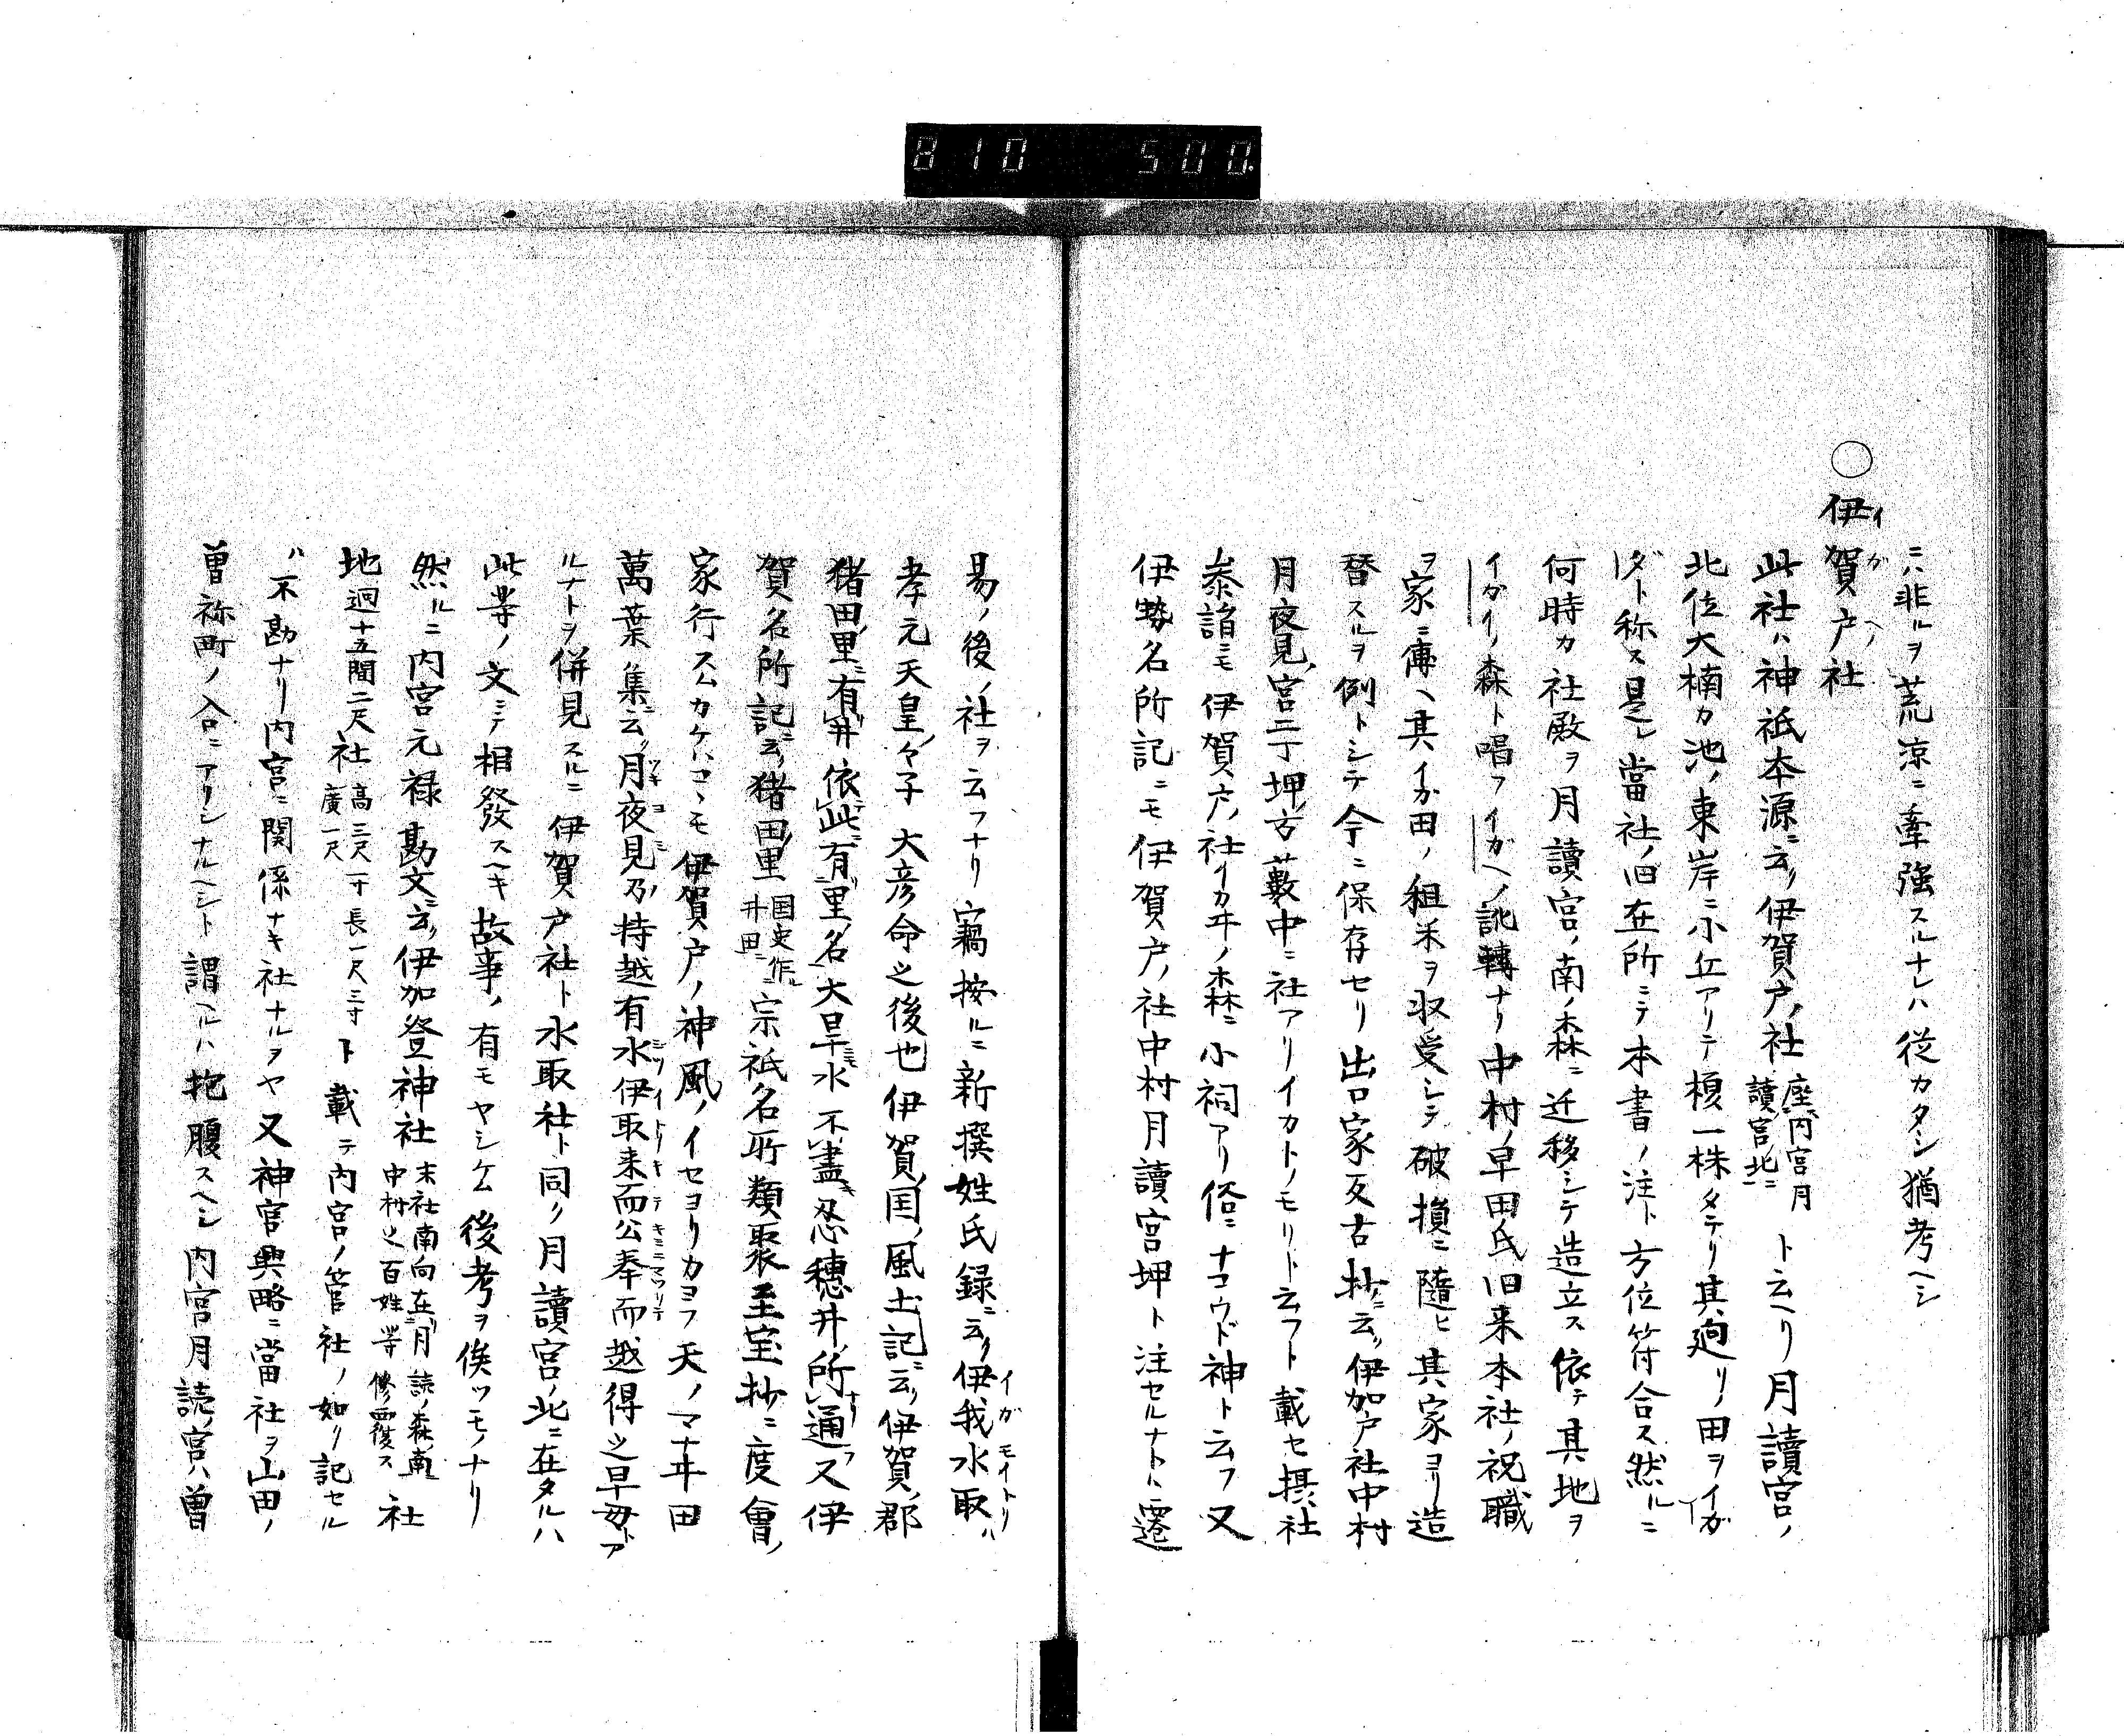 810 500.
ニハ非ルヲ荒凉ニ牽強スルナレハ從カタシ猶考ヘシ
○伊賀戸社
イガヘノ
此社ハ神祇本源ニ云ク伊賀戸ノ社座内宮月讀宮ノ北ニト云ヘリ月讀宮ノ
北位大楠カ池ノ東岸ニ小丘アリテ榎一株タテリ其廻リノ田ヲイガ
ダト称ス是レ當社ノ旧在所ニテ本書ノ注ト方位符合ス然ルニ
何時カ社殿ヲ月讀宮ノ南ノ森ニ迁移シテ造立ス依テ其地ヲ
イガイノ森ト唱フイガヘノ訛轉ナリ中村ノ早田氏旧来本社ノ祝職
ヲ家ニ傳ヘ其イガ田ノ租米ヲ収受シテ破損ニ隨ヒ其家ヨリ造
替スルヲ例トシテ今ニ保存セリ出口家反古抄ニ云ク伊加戸社中村
月夜見ノ宮二丁坤ノ方藪中ニ社アリイカトノモリト云フト載セ摂社
叅詣ニモ伊賀戸ノ社イカヰノ森ニ小祠アリ俗ニナコウド神ト云フ又
伊勢名所記ニモ伊賀戸ノ社中村月讀宮坤ト注セルナトハ遷
易ノ後ノ社ヲ云フナリ竊按ルニ新撰姓氏録ニ云ク伊我水取ハ
イガモイトリ
孝元天皇ノ々子大彦命之後也伊賀ノ国ノ風土記ニ云ク伊賀ノ郡
猪田ノ里ニ有井依此ニ有里ノ名大旱ニモ水不盡忍穗井ノ所通フ又伊
賀名所記ニ云ク猪田ノ里国史作ル井田ニ宗祇名所類聚至宝抄ニ度會ノ
家行スムカケハコヽモ伊賀戸ノ神風ノイセヨリカヨフ天ノマナヰ田
萬葉集ニ云ク月夜見乃持越有水伊取来而公奉而越得之早毋トア
ツキヨミノ
ミツイトリキテキミニマツリテ
ルナトヲ併見スルニ伊賀戸社ト水取社ト同ク月讀宮ノ北ニ在タルハ
此等ノ文ニテ相發スヘキ故事ノ有モヤシケム後考ヲ俟ツモノナリ
然ルニ内宮元禄勘文ニ云ク伊加登神社末社南向在月読ノ森ノ南ニ中村之百姓等修覆ス社
地廻十五間二尺社高三尺一寸長一尺三寸廣一尺ト載テ内宮ノ管社ノ如ク記セル
ハ不勘ナリ内宮ニ関係ナキ社ナルヲヤ又神宮興略ニ當社ヲ山田ノ
曽祢町ノ合ニアリシナルヘシト謂ヘルハ抱腹スヘシ内宮月読ノ宮ハ曽